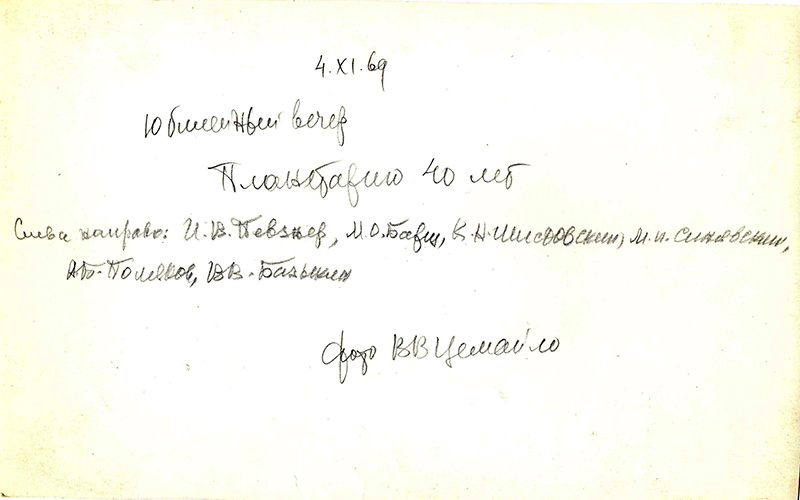 4.XI.69
Юбилейный вечер
Планетарию 40 лет
Слева направо: И.В. Певзнер, М.О. Барщ, К.Н. Шистовский, М.И. Синявский,
А.Т. Поляков, В.В. Базыкин
фото ВВ Цемайло